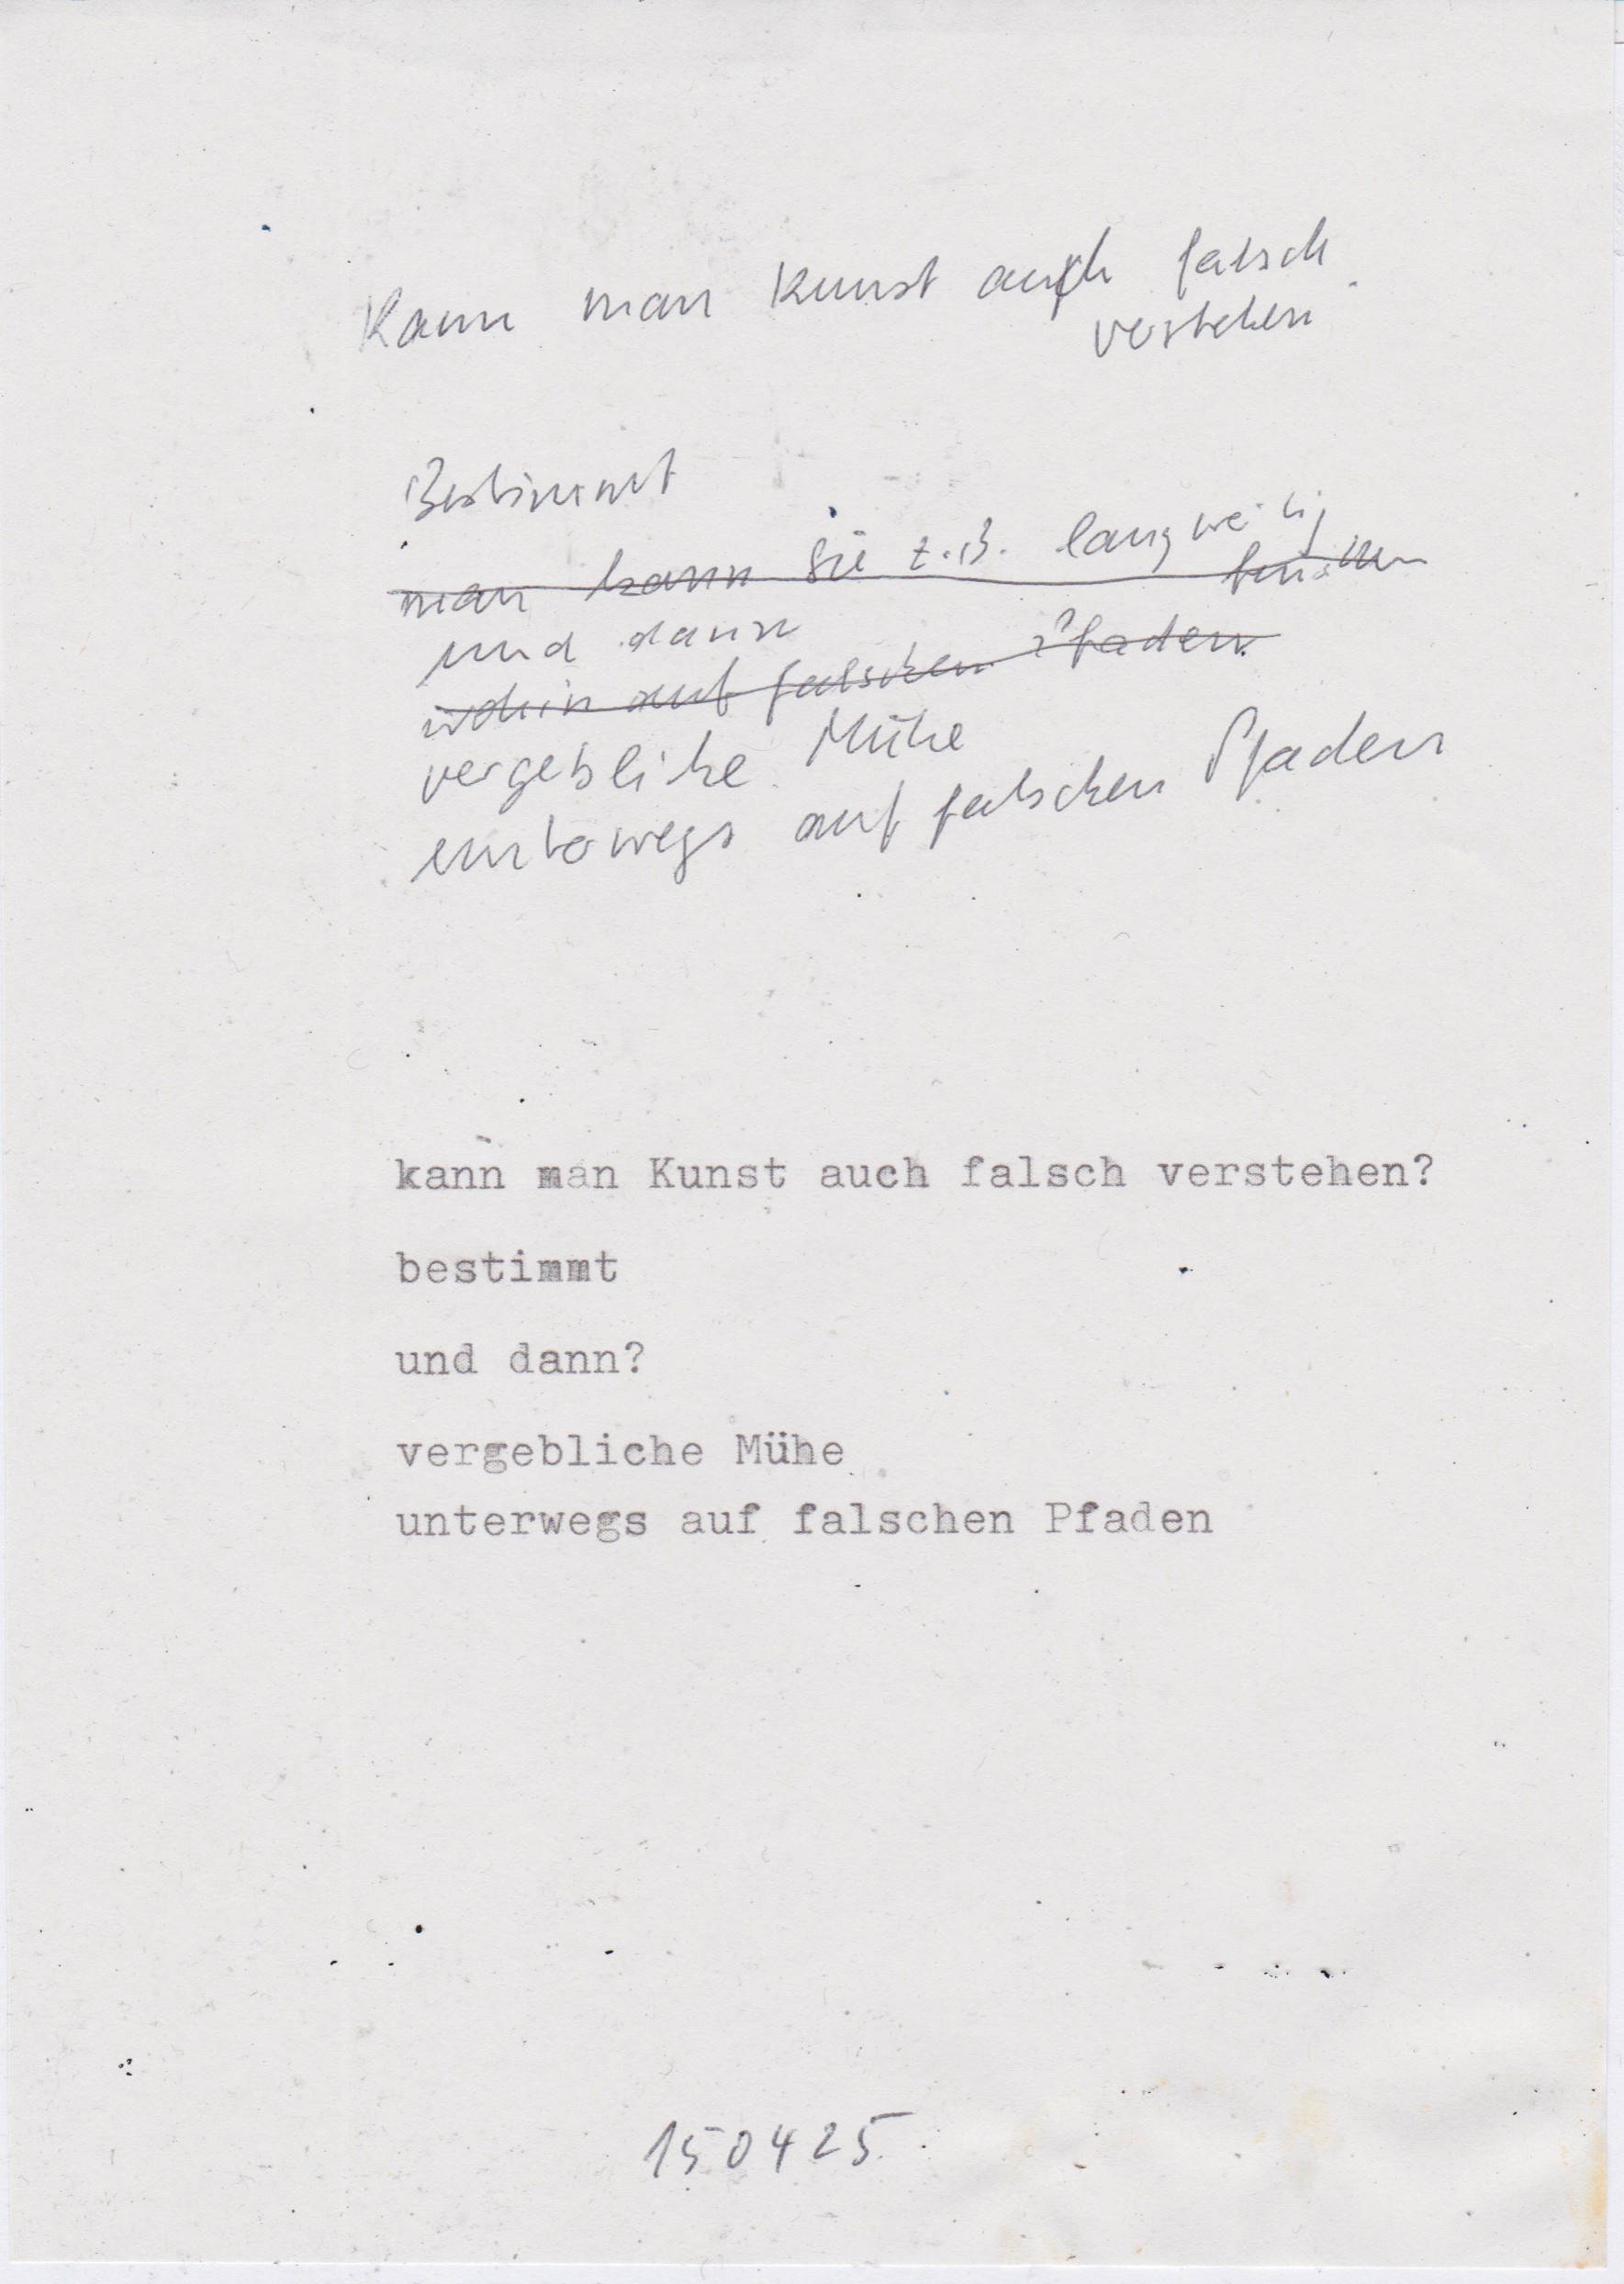 Kann man Kunst auch falsch
verstehen
Bestimmt
man kann sie z.B. langweilig
und dann
wohin auf falschen Pfaden
vergebliche Mühe
unterwegs auf falschen Pfaden
kann man Kunst auch falsch verstehen?
bestimmt
und dann?
vergebliche Mühe
unterwegs auf falschen Pfaden
150425